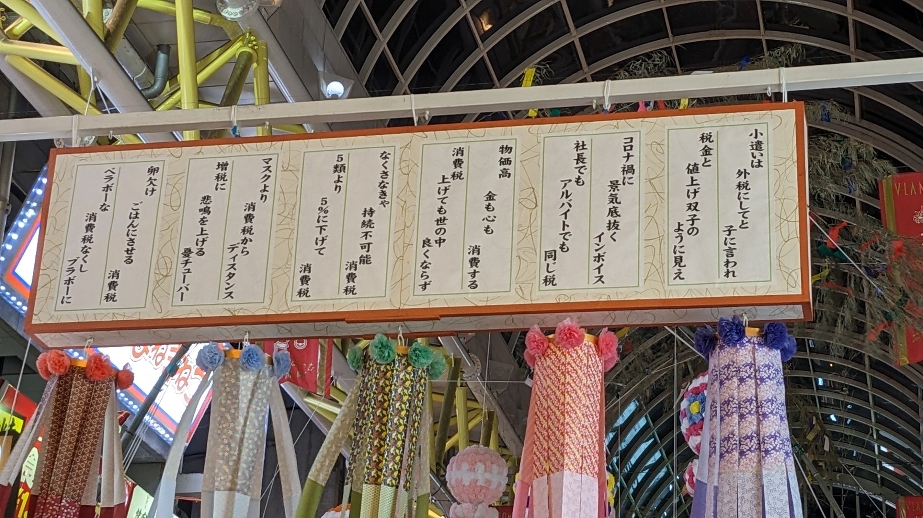 小遣いは 外税にしてと 子に言われ
税金と 値上げ双子の ように見え
コロナ禍に 景気底抜く インボイス
社長でも アルバイトでも 同じ税
物価高 金も心も 消費する
消費税 上げても世の中 良くならず
なくさなきゃ 持続不可能 消費税
5類より 5%に下げて 消費税
マスクより 消費税から ディスタンス
増税に 悲鳴を上げる 憂チューバー
卵欠け ごはんにさせる 消費税
ベラボーな 消費税なくし ブラボーに